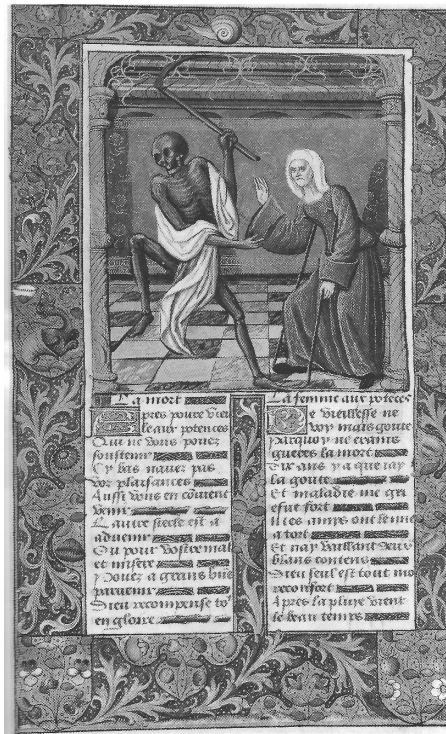 La mort
Apres povre viel
le aux potences
Qui ne vous povez
soustenir
Cy bas navez pas
voz plaisances
Aussi vous en convient
venir
L autre siecle est a
advenir
Ou pour vostre mal
et misere
pourez a grans bies
parvenir
Dieu recompense to
en gloire
La femme aux potēces
De vieillesse ne
voy mais goute
Parquoy ne crains
gueres la mort
Dix ans y a que jay
la goute
Et maladie me gri
efue fort
Mes amys ont le mie
a tort
Et nay vaillant deux
blans contens
Dieu seul est tout mo
reconfort
Apres la pluye vient
le beau temps